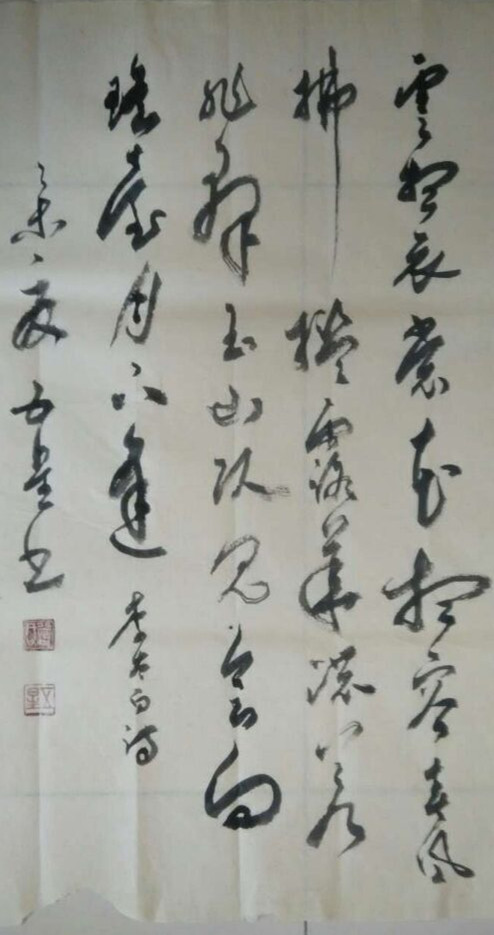 雲想衣裳花想容春風
拂檻露華濃若
非群玉山頭見會向
瑤臺月下逢 李太白詩
夏 五星书